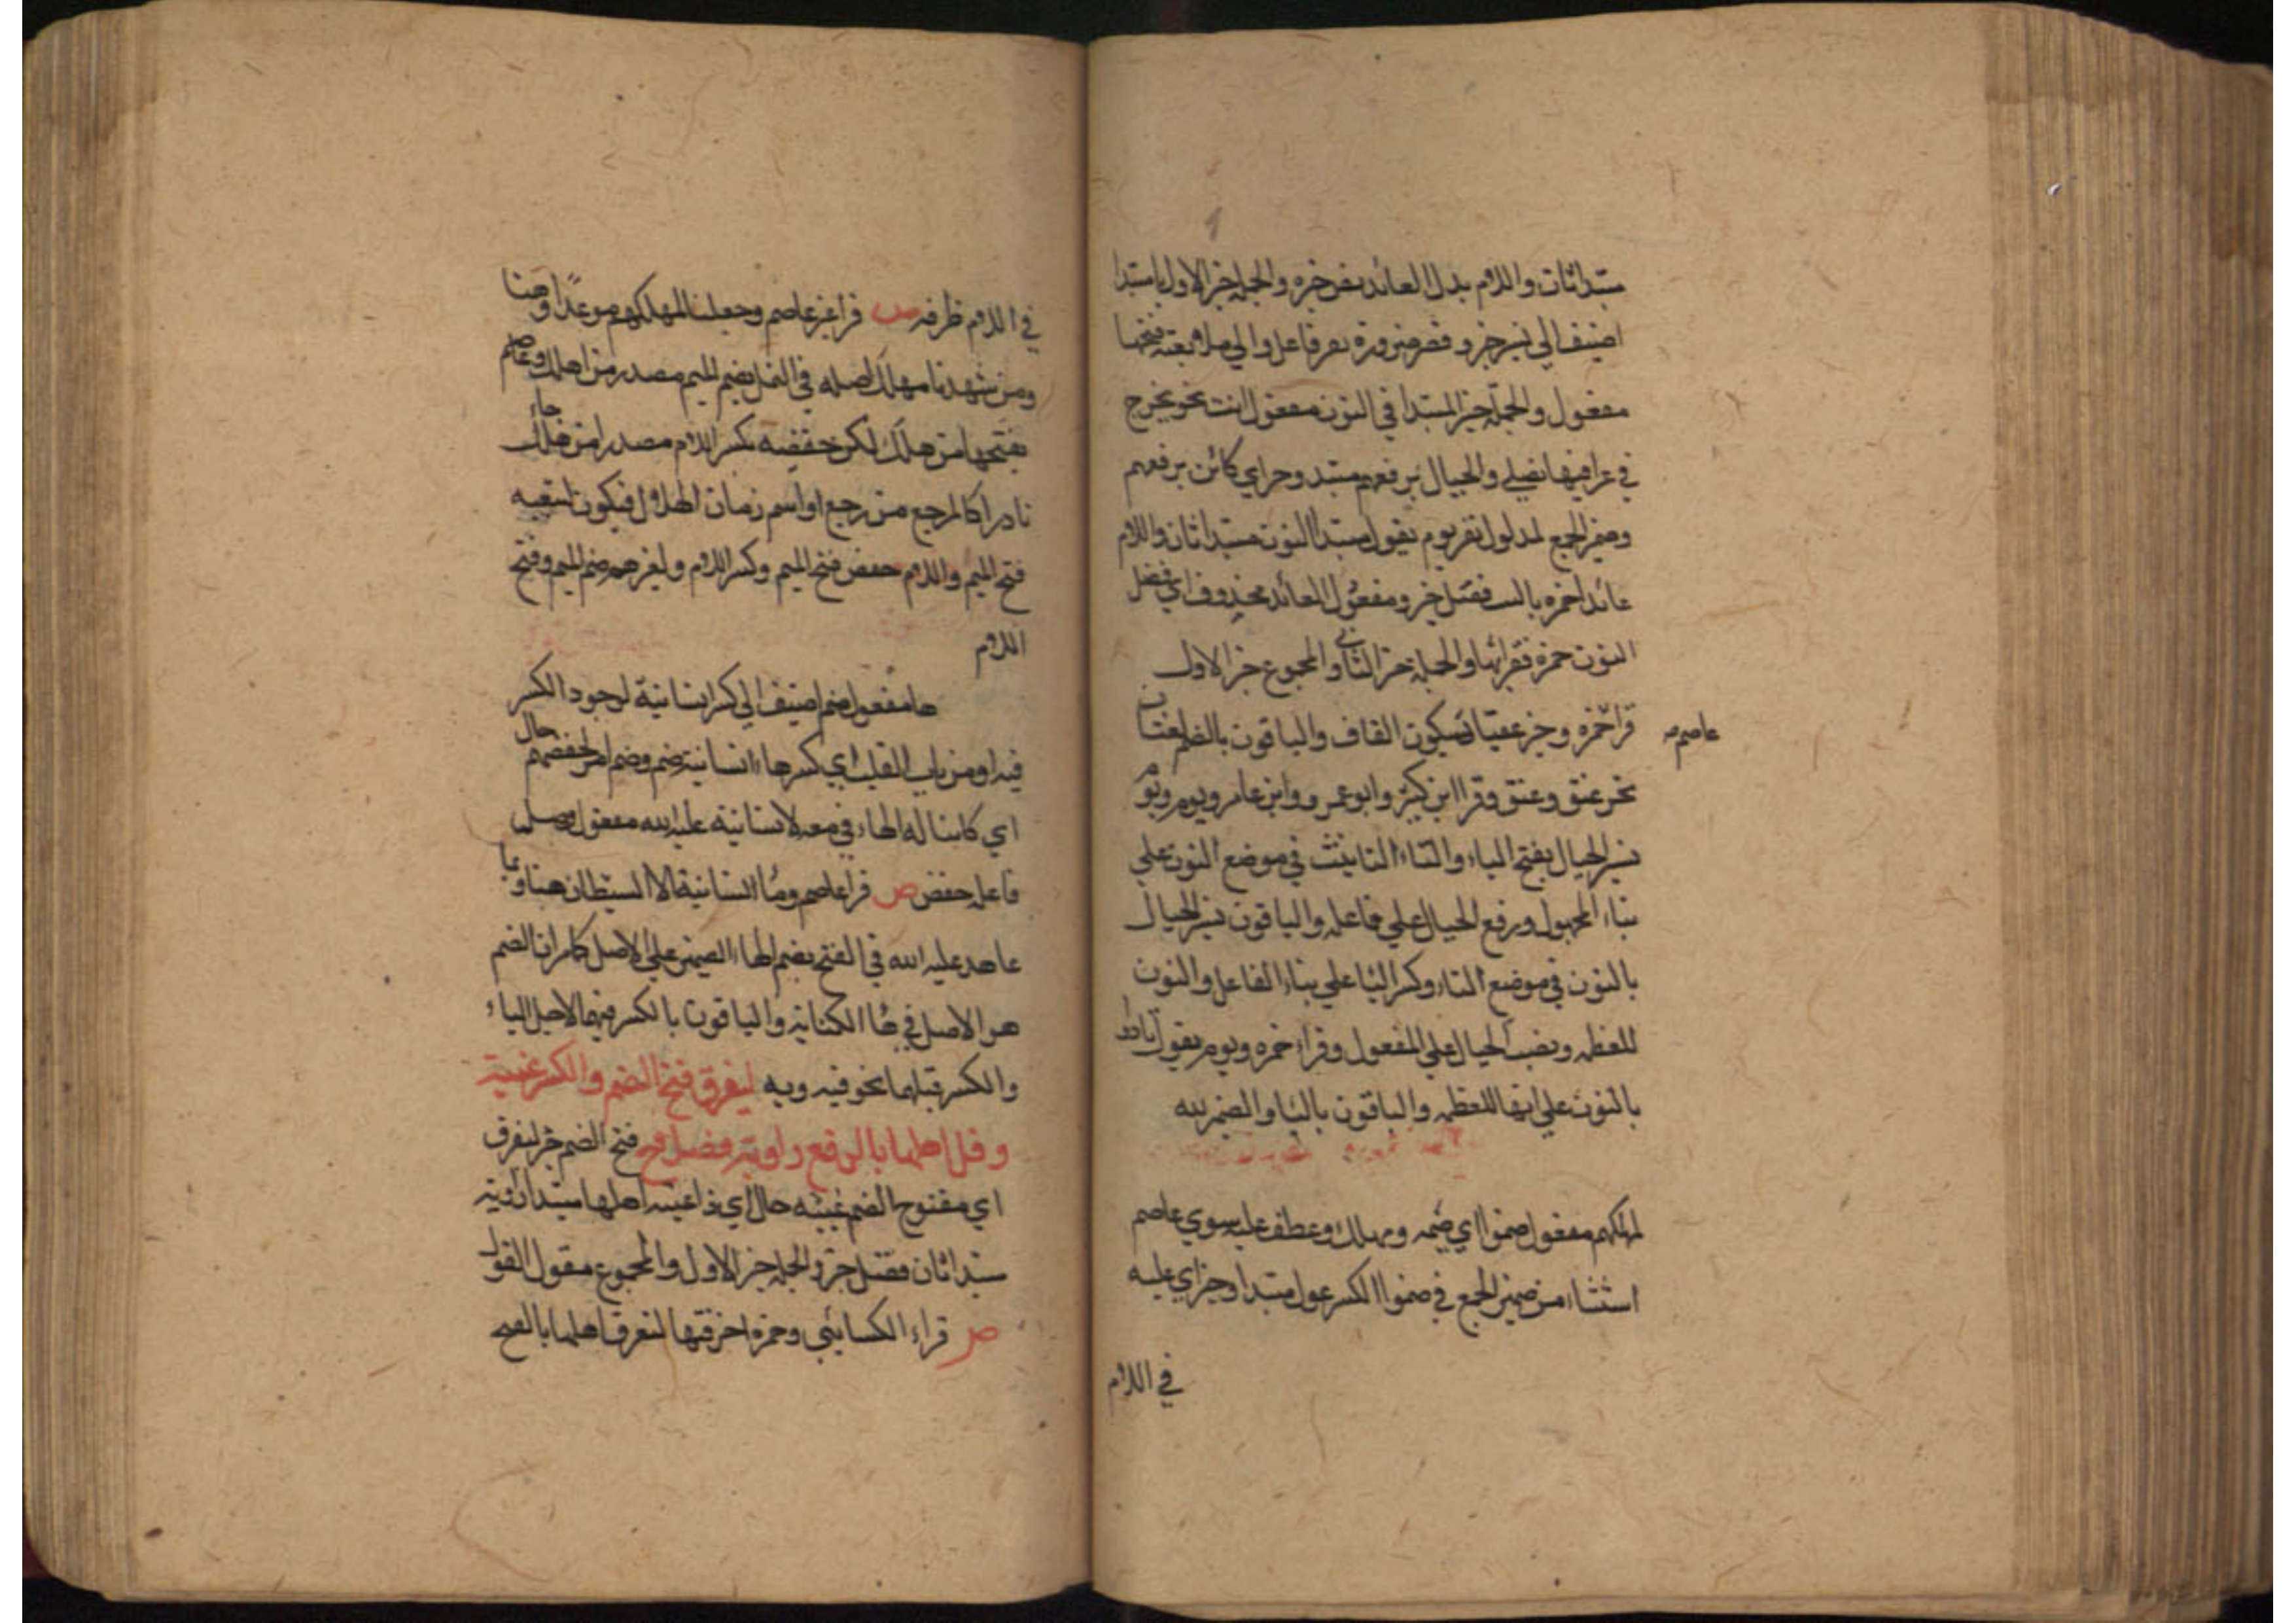 مبتدا ثان واللام بدل العائد نفر خبره والجملة خبر الاول يا مبتدا
اضيف الي نسير خبر و قصر ضرورة نفر فاعل والي ملا بعته فتحها
مفعول والجملة خبر المبتدا في النون مفعول انث نحو يخرج
في عراقيبها نصلي والجبال برفعهم مبتدا وخبر اي كائن برفعهم
وضمير الجمع لمدلول نفر يوم يقول مبتدا النون مبتدا ثان واللام
عائد حمزه فضل خبر ومفعول العائد محذوف اي فضل
النون حمزه فقرا بها والجملة خبر الثاني والمجموع خبر الاول
قرا حمزه و خير عقبا بسكون القاف والباقون بالضم لغتان
عاصم ص
نحو عنق وعنق وقرا ابن كثير وابو عمرو وابن عامر ويوم
تسير الجبال بفتح الياء والتاء التانيث في موضع النون علي
بناء المجهول ورفع الجبال علي فاعله والباقون نسير الجبال
بالنون في موضع التاء وكسر اليا علي بناء الفاعل والنون
للعظمه ونصب الجبال علي المفعول وقراء حمزه ويوم يقول نادوا
بالنون علي انها للعظمه والباقون باليا والضمير لله
لمهلكهم مفعول ضموا اي ضمه ومهلك وعطف عليه سوي عاصم
استثناء من ضمير الجمع في ضموا الكسر عول مبتدا وخبر اي عليه
في اللام
في اللام ظرفه ص قرا غير عاصم وجعلنا لمهلكهم موعدا وهنا
ومن شهدنا مهلك اهله في النمل بضم الميم مصدر من اهلك وعاصم
بفتحها من هلك لكن حفضه بكسر اللام مصدرا من هلك جاء
نادرا كالمرجع من رجع او اسم زمان الهلاك فيكون لشعبه
فتح الميم واللام حفض فتح الميم وكسر اللام ولغيرهم ضم الميم وفتح
اللام
ها مفعول ضم اضيف الي كسر انسانية لوجود الكسر
فيه او من باب القلب اي كسرها انسانية ضم وضم امر لحفضهم حال
اي كائنا له الهاء في معه لانسانية عليه الله مفعول وصل
فاعله حفض ص قرا عاصم وما انسانية الا الشيطان هنا وبما
عاهد عليه الله في الفتح بضم الهاء الضمير علي الاصل كما مر ان الضم
هو الاصل في هاا الكناية والباقون بالكسر فيهما لاجل الياء
والكسر قبلهما نحو فيه وبه ليغرق فتح الضم والكسر غيبة
و قل اهلها بالرفع راويه فصلا فتح الضم خبر ليغرق
اي مفتوح الضم غيبته حال اي ذا غيبه اهلها مبتدا راويه
مبتدا ثان فصل خبر والجملة خبر الاول والمجموع مقول القول
ص قراء الكسائي وحمزه اخرقتها لتغرق اهلها بالفتح